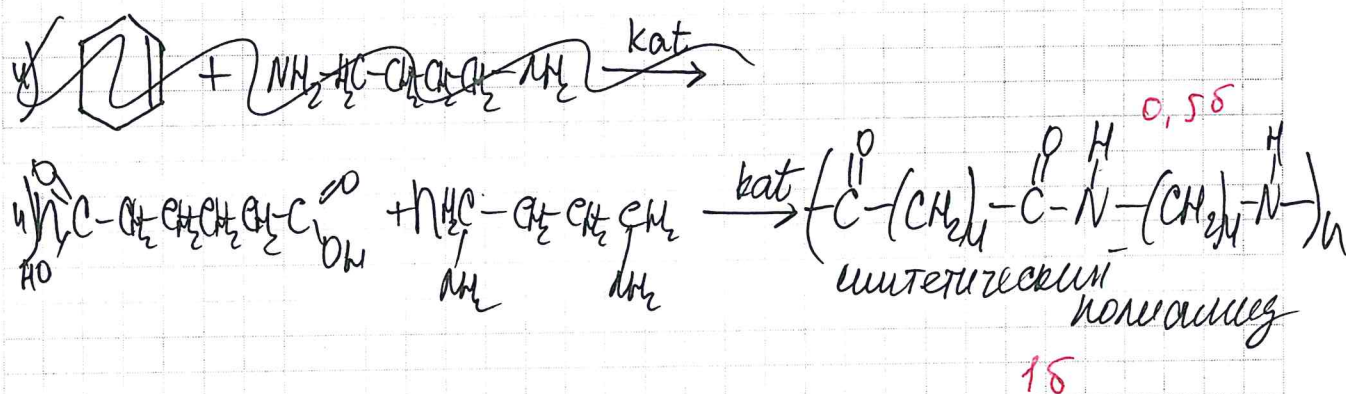 4) + NH₂-H₂C-CH₂-CH₂-CH₂-NH₂ kat →
0,5б
4) n O=C(HO)-CH₂-CH₂-CH₂-CH₂-C(=O)OH + n H₂C(NH₂)-CH₂-CH₂-CH₂(NH₂) kat → (-C(=O)-(CH₂)₄-C(=O)-N(H)-(CH₂)₄-N(H)-)n
синтетический
полиамид
1б